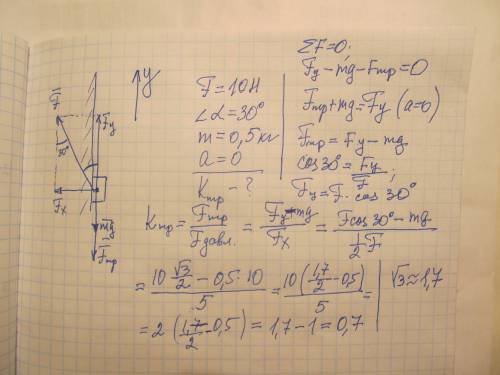 y
F⃗
F⃗y
30°
Fx
mg⃗
F⃗тр
F = 10 Н
∠α = 30°
m = 0,5 кг
a = 0
Kтр - ?
ΣF = 0.
Fy - mg - Fтр = 0
Fтр + mg = Fy (a=0)
Fтр = Fy - mg
cos 30° = Fy/F ;
Fy = F · cos 30°
Kтр = Fтр/Fдавл. = (Fy - mg)/Fx = (F cos 30° - mg)/(1/2 F)
= (10 √3/2 - 0,5 · 10)/5 = 10(1,7/2 - 0,5)/5 =
√3 ≈ 1,7
= 2 (1,7/2 - 0,5) = 1,7 - 1 = 0,7